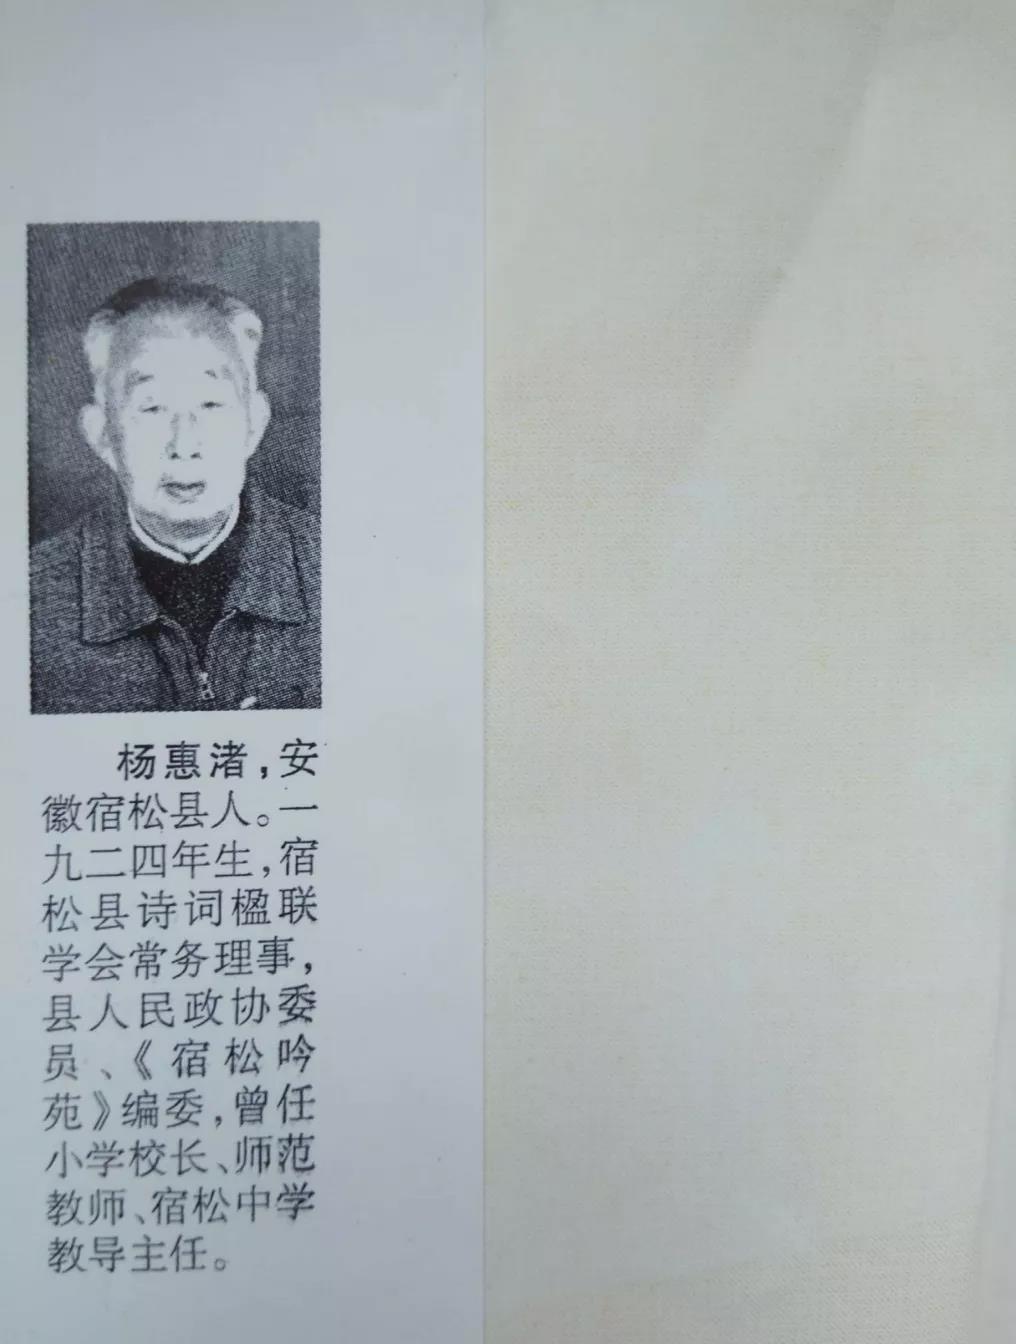 杨惠渚，安
徽宿松县人。一
九二四年生，宿
松县诗词楹联
学会常务理事，
县人民政协委
员、《宿松吟
苑》编委，曾任
小学校长、师范
教师、宿松中学
教导主任。